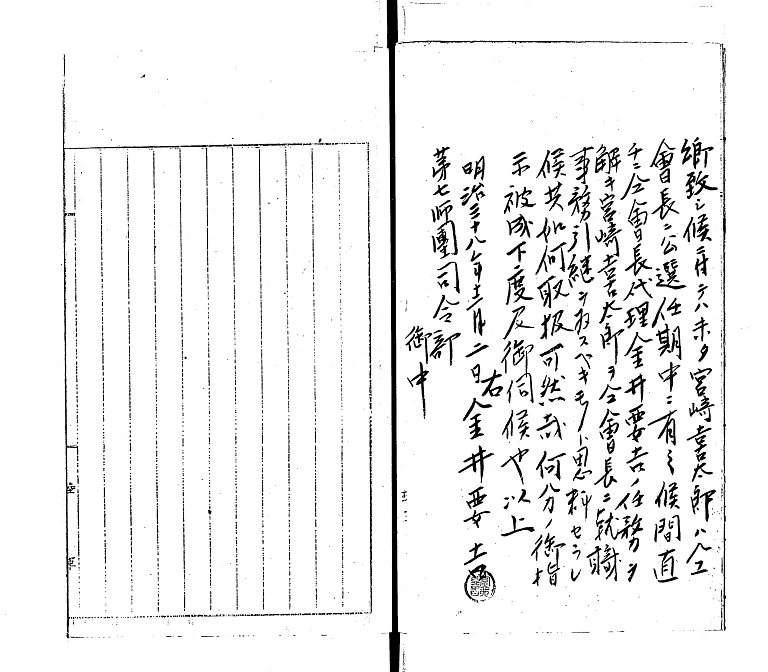 郷致シ候ニ付テハ未タ宮崎喜太郎ハ仝
會長ニ公選任期中ニ有之候間直
チニ仝會長代理金井要吉ノ任務ヲ
解キ宮崎喜太郎ヲ仝會長ニ就職
事務引継ヲ為スベキモノト思料セラレ
候共如何取扱可然哉何分ノ御指
示被成下度及御伺候也以上
右
明治三十八年十二月二日金井要吉
第七師團司令部
御中
陸軍